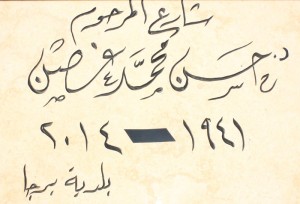 شارع المرحوم
حسن محمد غصن
١٩٤١ - ٢٠١٤
بلدية برجا